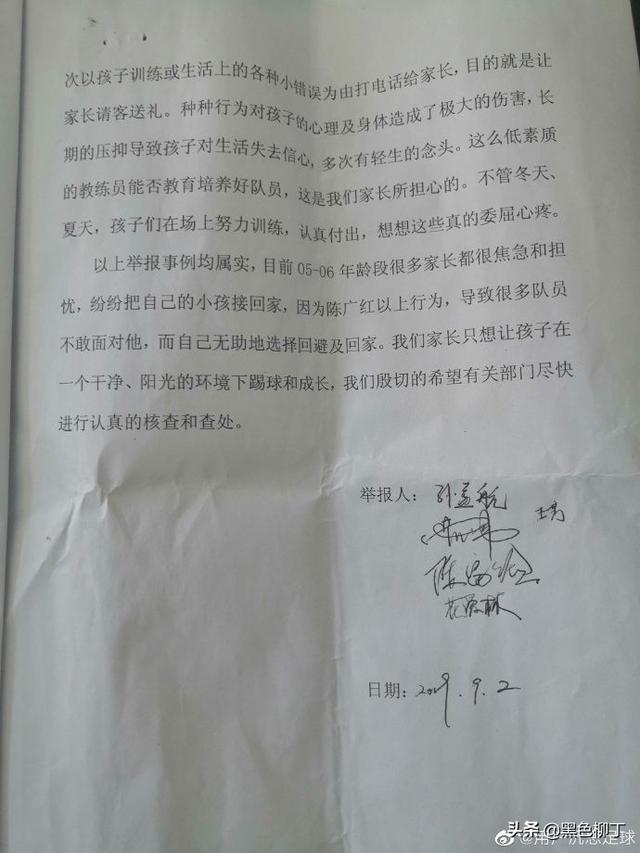 次以孩子训练或生活上的各种小错误为由打电话给家长，目的就是让
家长请客送礼。种种行为对孩子的心理及身体造成了极大的伤害，长
期的压抑导致孩子对生活失去信心，多次有轻生的念头。这么低素质
的教练员能否教育培养好队员，这是我们家长所担心的。不管冬天、
夏天，孩子们在场上努力训练，认真付出，想想这些真的委屈心疼。
以上举报事例均属实，目前 05-06 年龄段很多家长都很焦急和担
忧，纷纷把自己的小孩接回家，因为陈广红以上行为，导致很多队员
不敢面对他，而自己无助地选择回避及回家。我们家长只想让孩子在
一个干净、阳光的环境下踢球和成长，我们殷切的希望有关部门尽快
进行认真的核查和查处。
举报人：
日期：2019.9.2
头条 @黑色柳丁